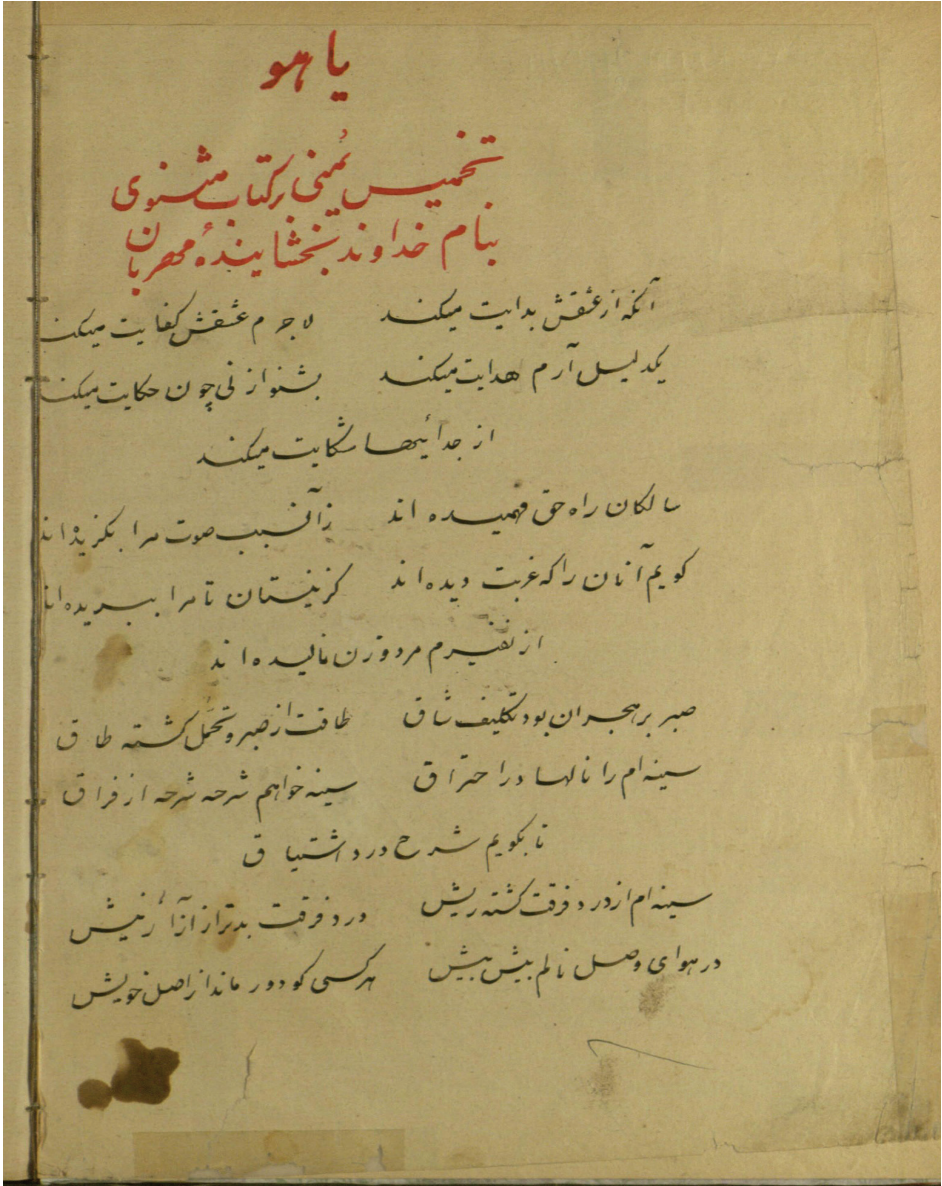 یا هو
تخمیس یُمنی بر کتاب مثنوی
بنام خداوند بخشایندهٔ مهربان
آنکه از عشقش بدایت میکند لاجرم عشقش کفایت میکند
یکدلیل آرم هدایت میکند بشنو از نی چون حکایت میکند
از جدائیها شکایت میکند
سالکان راه حق فهمیده اند زآنسبب صوت مرا بگزیده اند
کویم آنان را که غربت دیده اند کزنیستان تا مرا ببریده اند
از نفیرم مرد و زن نالیده اند
صبر بر هجران بود تکلیف شاق طاقت از صبر و تحمّل کشته طاق
سینه ام را نالها در احتراق سینه خواهم شرحه شرحه از فراق
تا بکویم شرح درد اشتیاق
سینه ام از درد فرقت کشته ریش درد فرقت بدتر از آزار نیش
در هوای وصل نالم بیش بیش هر کسی کو دور ماند از اصل خویش